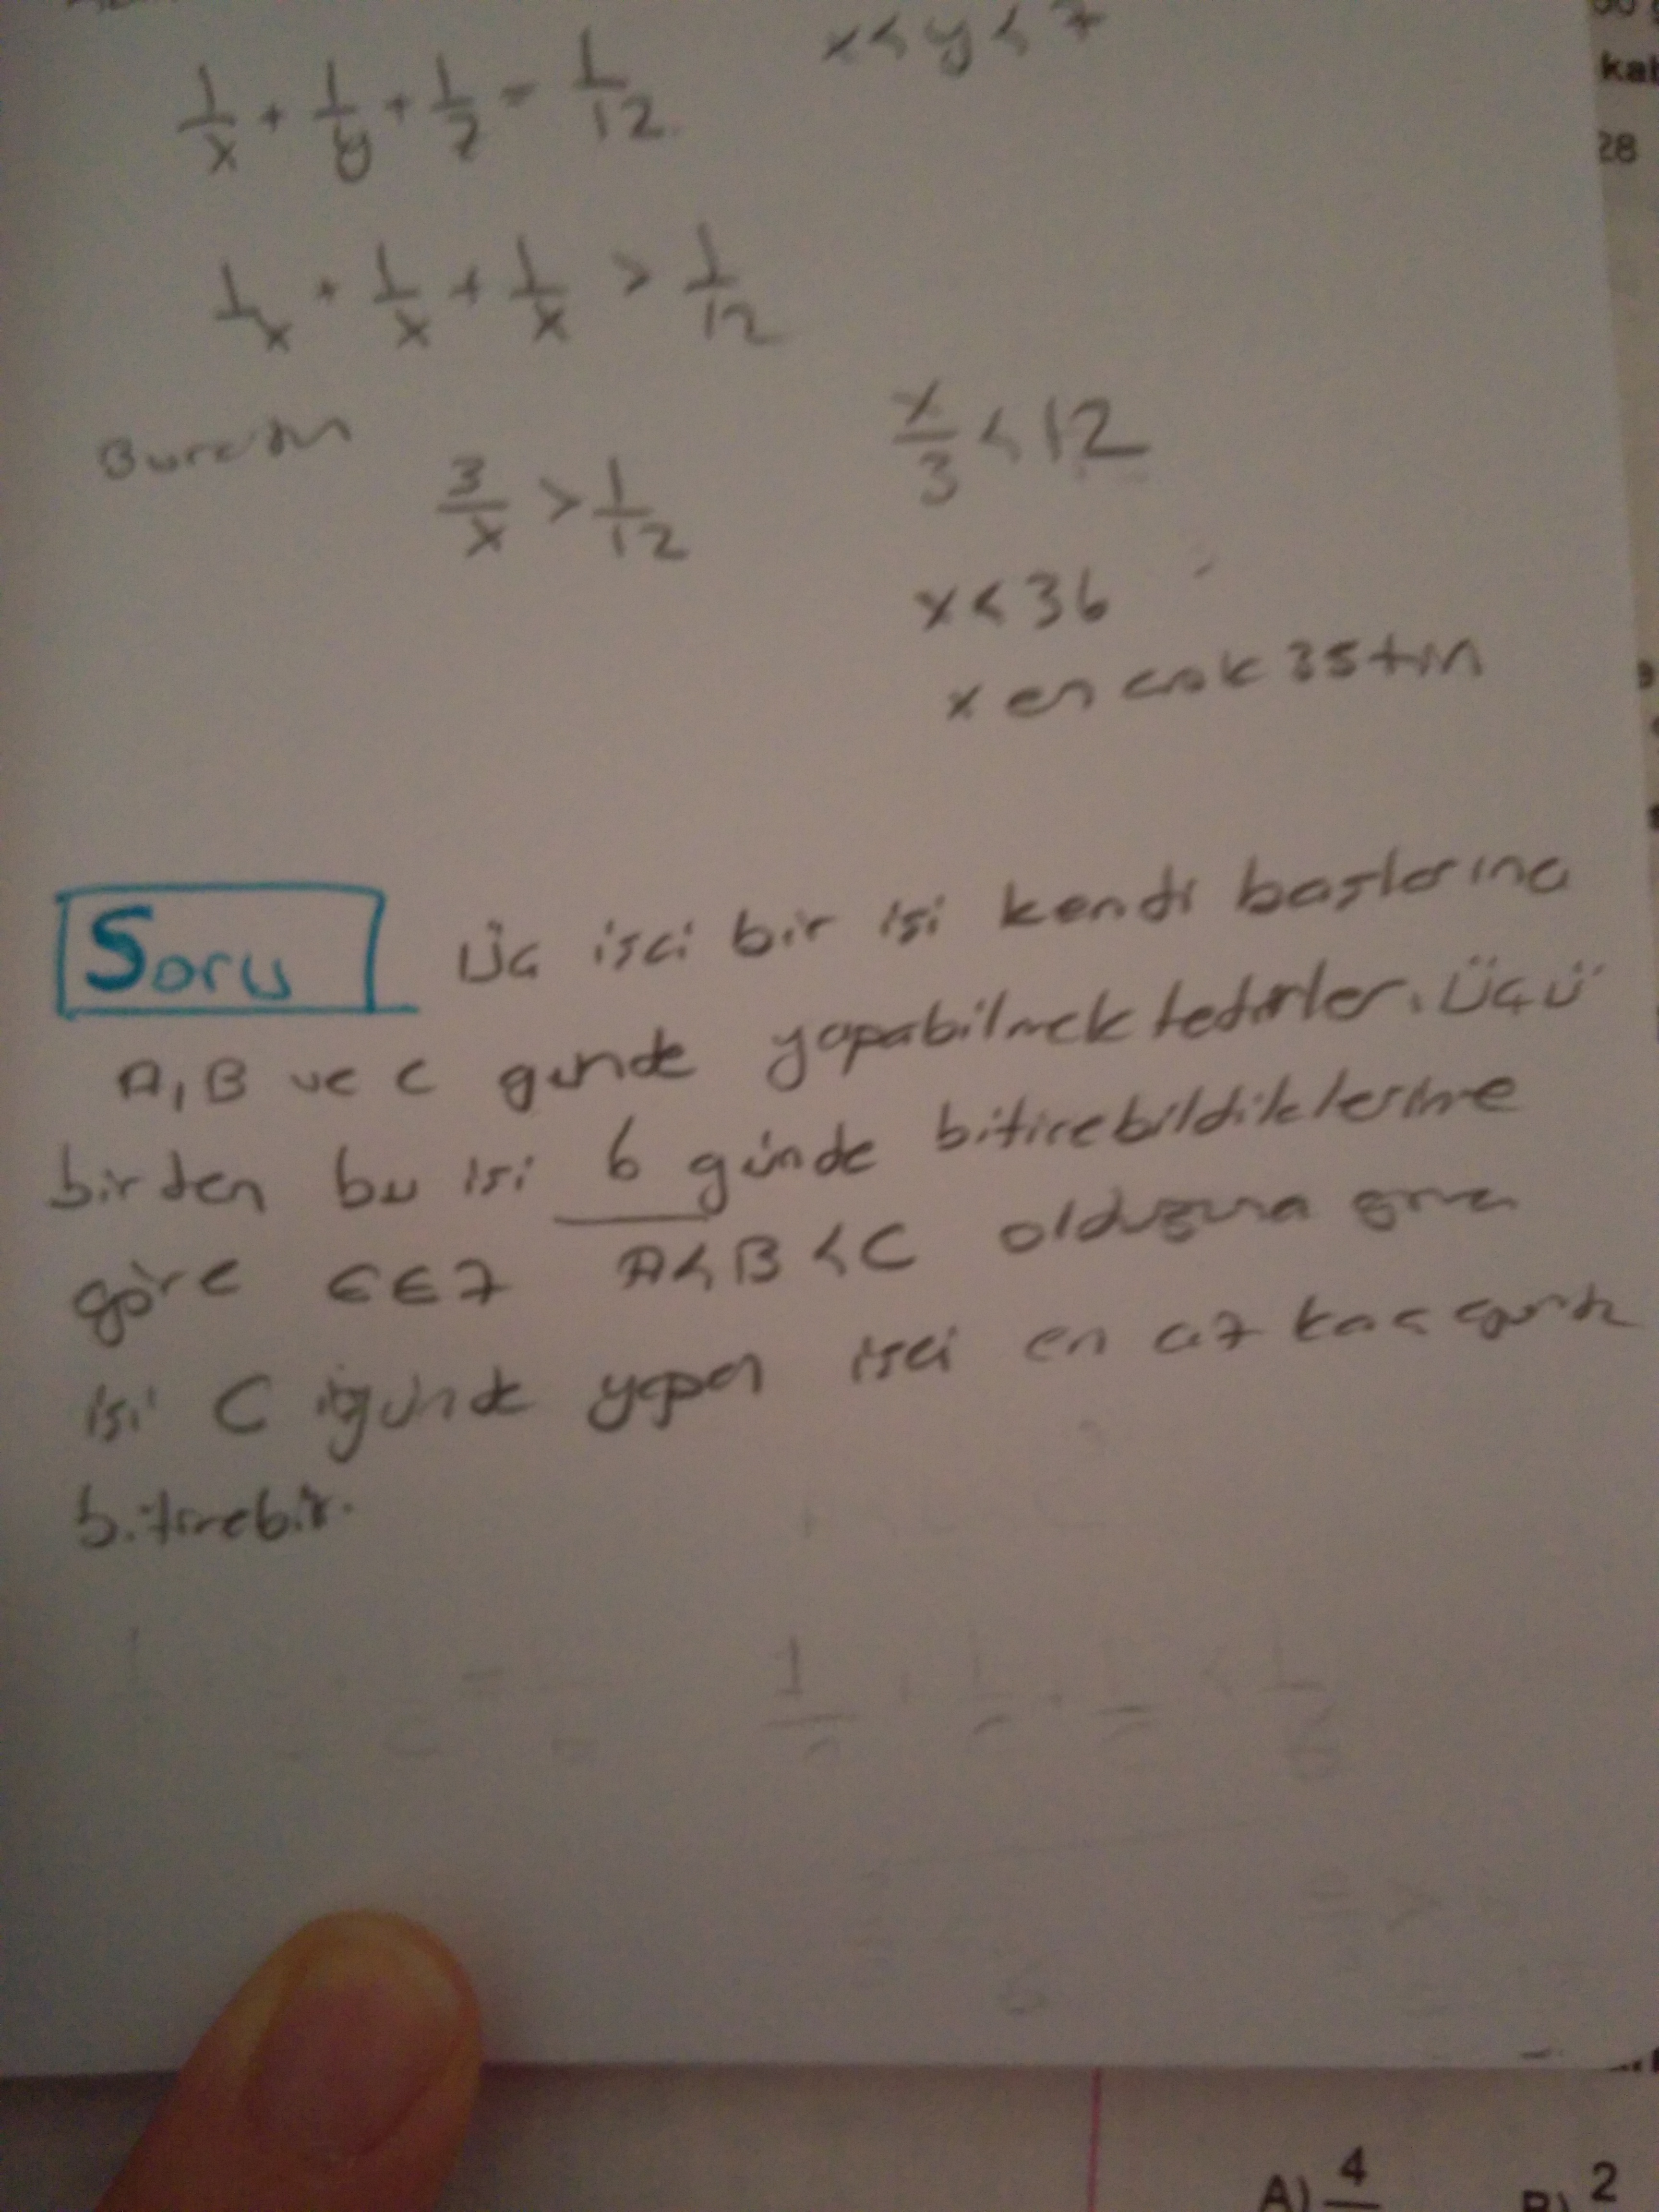 x<y<z
1/x + 1/y + 1/z = 1/12
kal
28
1/x + 1/x + 1/x > 1/12
Buradan
x/3 < 12
3/x > 1/12
x<36
x en çok 35tir
Soru Üç işci bir işi kendi başlarına
A,B ve C günde yapabilmektedirler. Üçü
birden bu işi 6 günde bitirebildiklerine
göre CEZ A<B<C olduğuna göre
işi C günde yapan işci en az kaç günde
bitirebilir.
A) 4
B) 2